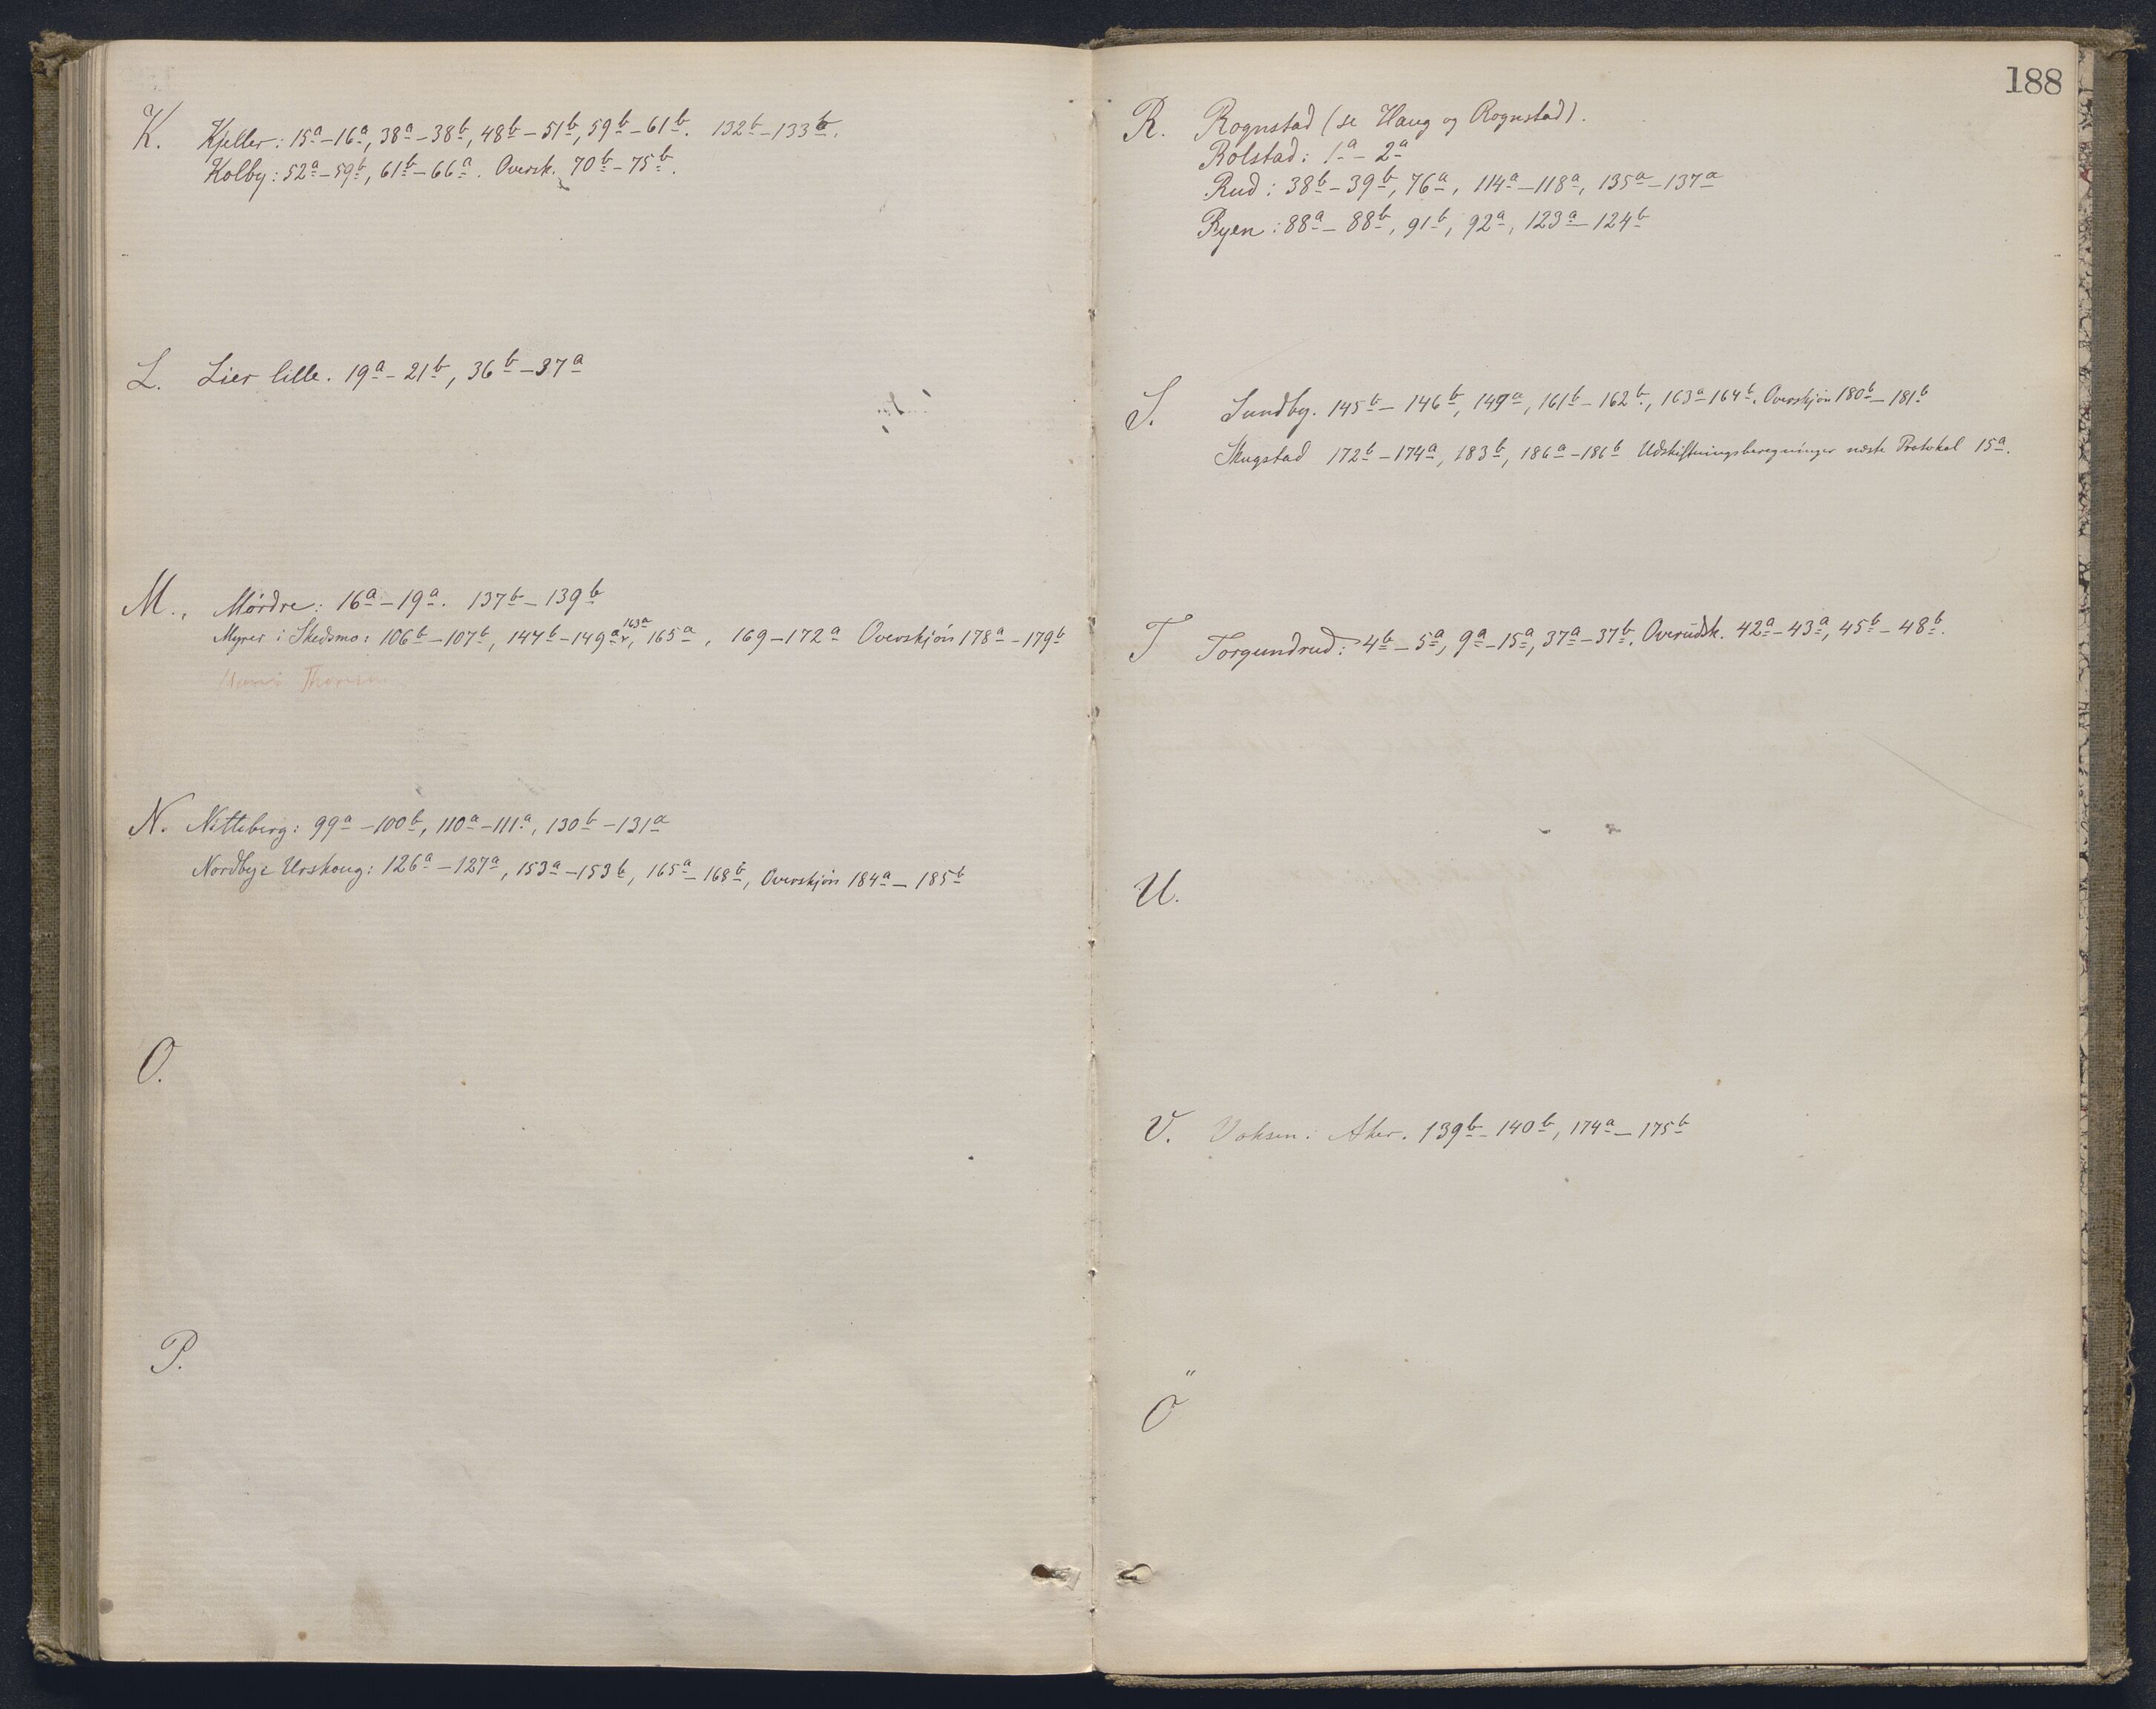 K. Kjeller: 15a–16a, 38a–38b, 48b–51b, 59b–61b. 132b–133b.
Kolby: 52a–59b, 61b–66a. Oversk. 70b–75b.
L. Lier lille. 19a–21b, 36b–37a
M. Mórdre: 16a–19a. 137b–139b
163a
Myrer i Skedsmo: 106b–107b, 147b–149a, 165a, 169–172a Overskjön 178a–179b
Thoresen
N. Nitteberg: 99a–100b, 110a–111a, 130b–131a
Nordby i Urskoug: 126a–127a, 153a–153b, 165a–168b, Overskjön 184a–185b
O.
P.
188
R. Rognstad (se Haug og Rognstad).
Rolstad: 1a–2a
Rud: 38b–39b, 76a, 114a–118a, 135a–137a
Ryen: 88a–88b, 91b, 92a, 123a–124b
S. Sundby. 145b–146b, 149a, 161b–162b, 163a–164b. Overskjön 180b–181b
Skugstad 172b–174a, 183b, 186a–186b Udskiftningsberegninger næste Protokol 15a.
T Torgundrud: 4b–5a, 9a–15a, 37a–37b. Overudsk. 42a–43a, 45b–48b.
U.
V. Voksen i Aker. 139b–140b, 174a–175b
Ö